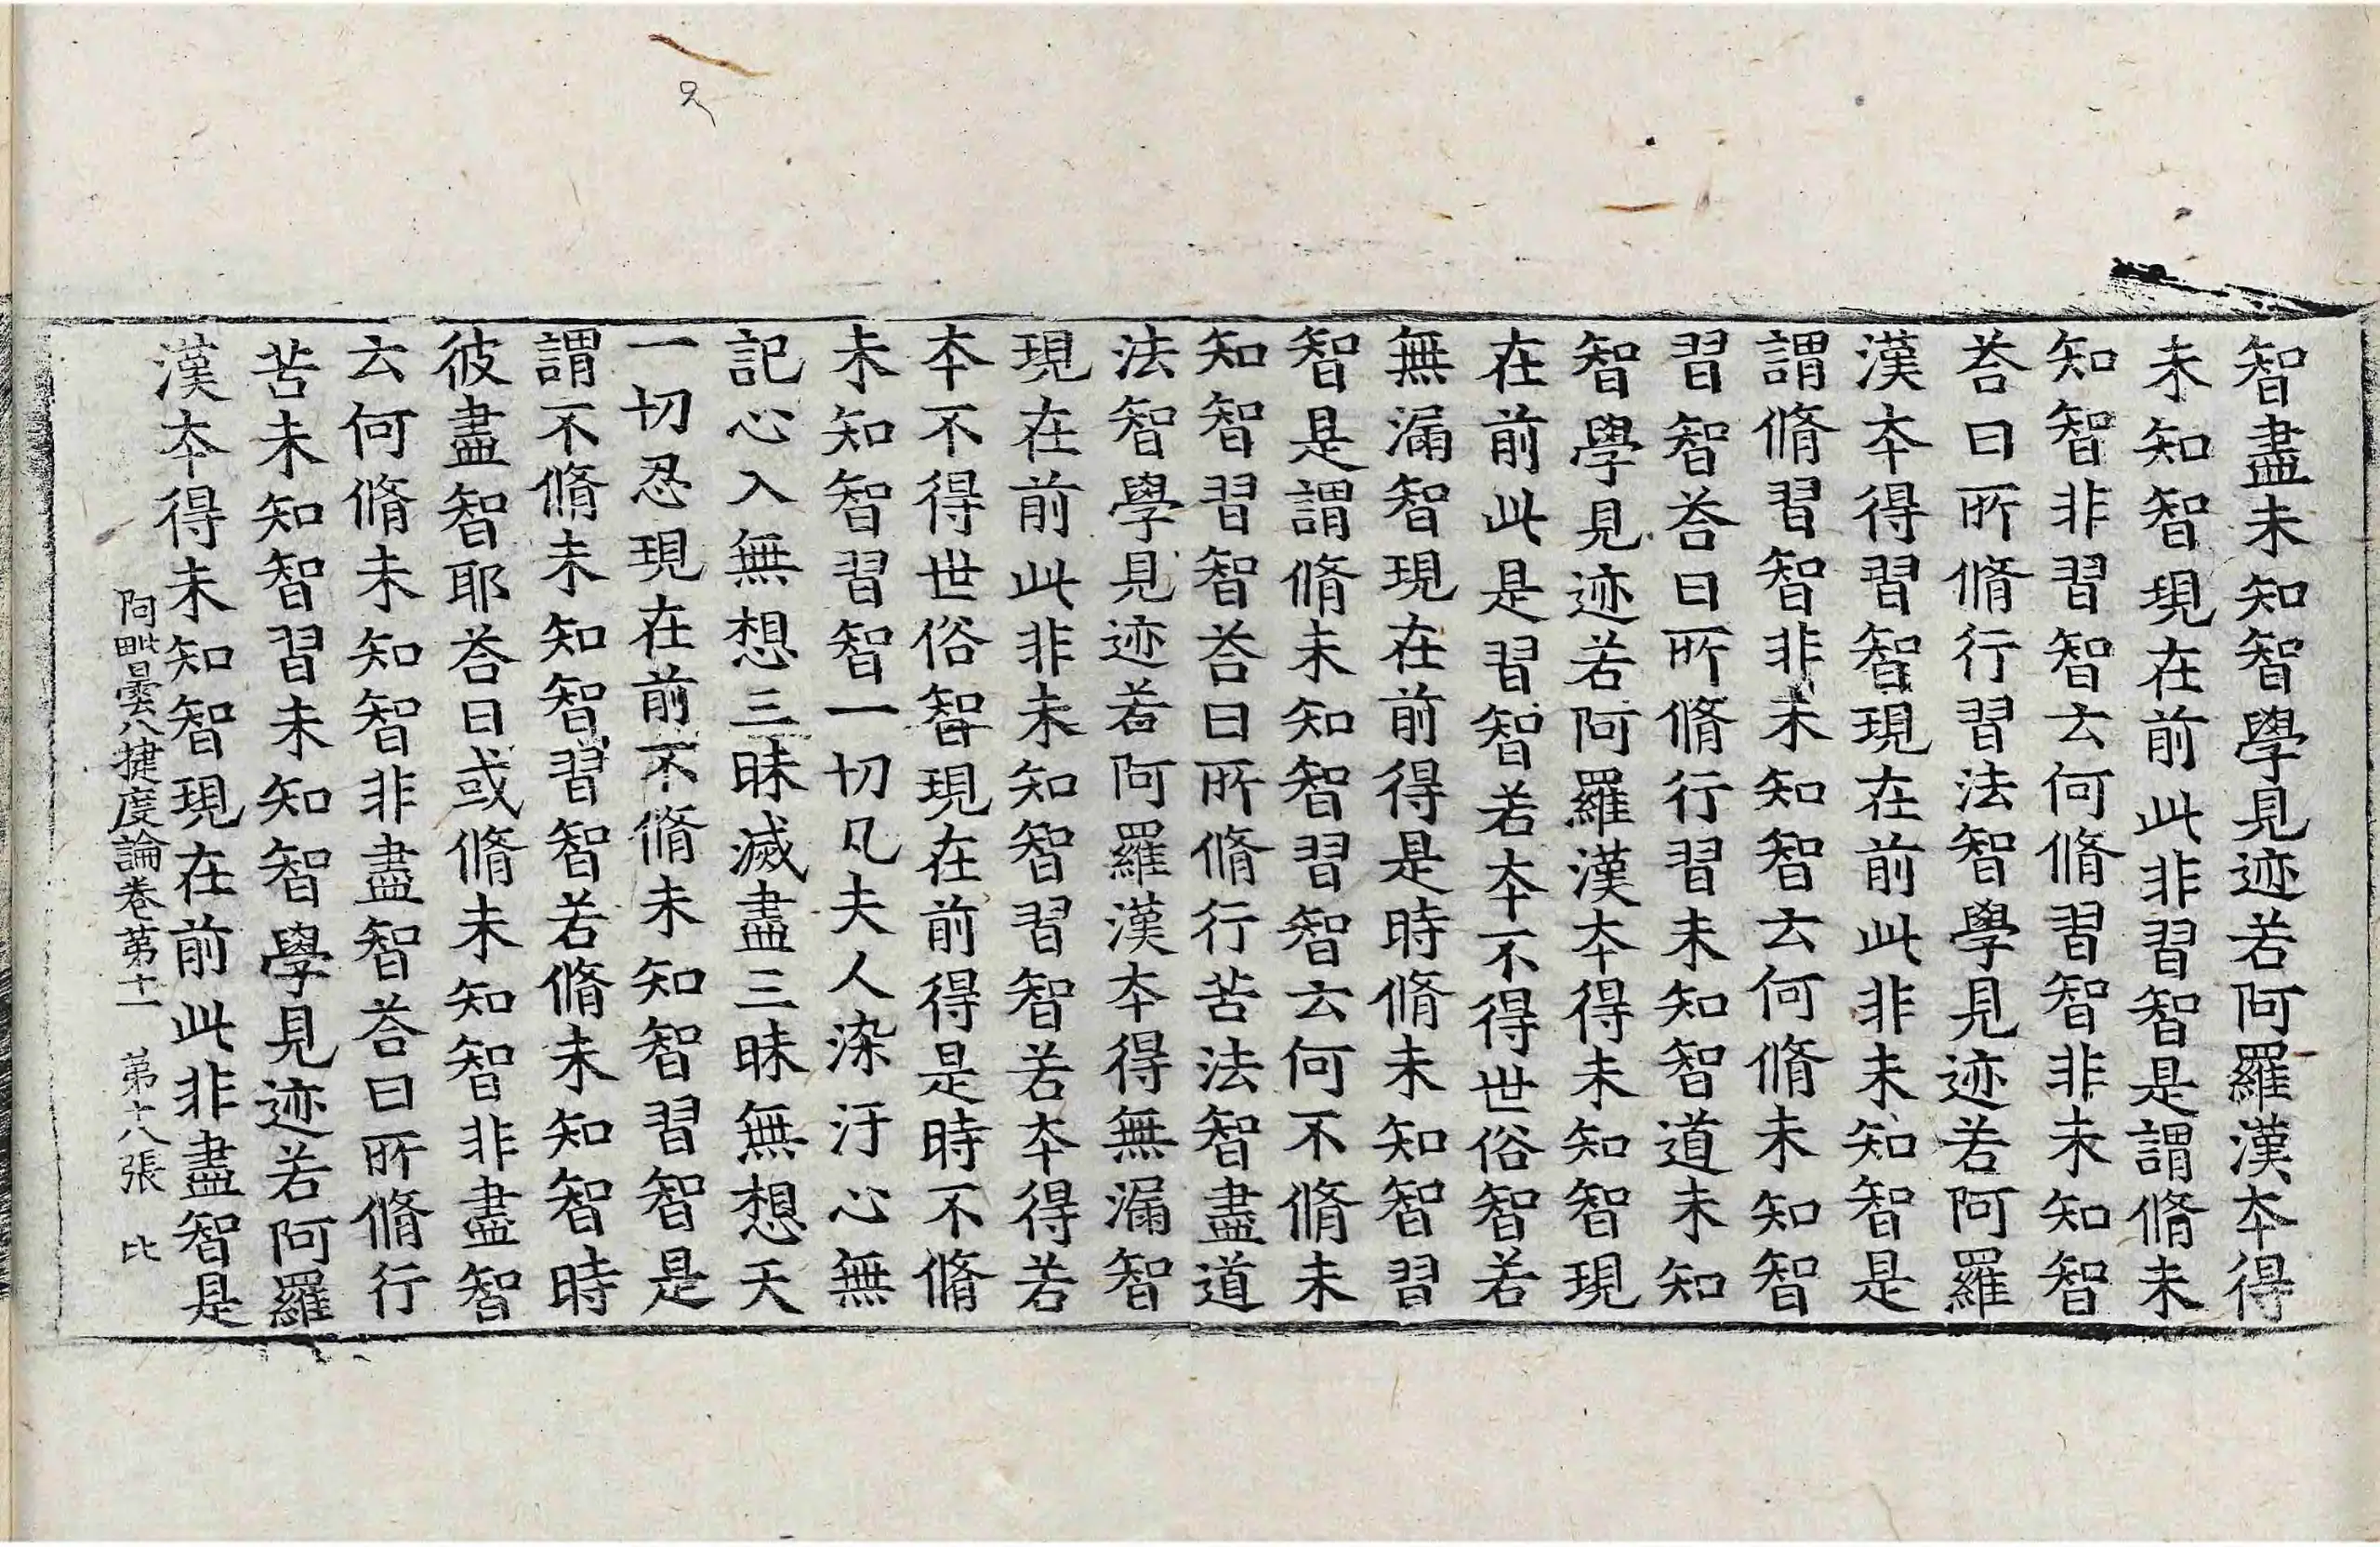 智盡未知智學見迹若阿羅漢夲得
未知智現在前此非習智是謂脩未
知智非習智云何脩習智非未知智
荅曰所脩行習法智學見迹若阿羅
漢夲得習智現在前此非未知智是
謂脩習智非未知智云何脩未知智
習智荅曰所脩行習未知智道未知
智學見迹若阿羅漢夲得未知智現
在前此是習智若夲不得世俗智若
無漏智現在前得是時脩未知智習
智是謂脩未知智習智云何不脩未
知智習智荅曰所脩行苦法智盡道
法智學見迹若阿羅漢夲得無漏智
現在前此非未知智習智若夲得若
夲不得世俗智現在前得是時不脩
未知智習智一切凡夫人染汙心無
記心入無想三昧滅盡三昧無想天
一切忍現在前不脩未知智習智是
謂不脩未知智習智若脩未知智時
彼盡智耶荅曰或脩未知智非盡智
云何脩未知智非盡智荅曰所脩行
苦未知智習未知智學見迹若阿羅
漢夲得未知智現在前此非盡智是
阿毗曇八揵度論卷苐十一　苐十八張　比